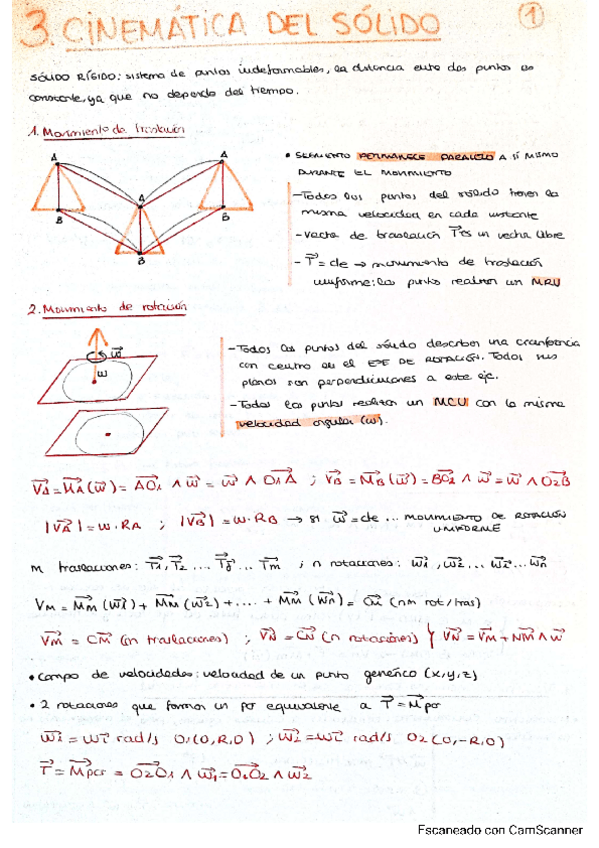 3. CINEMÁTICA DEL SÓLIDO
1
SÓLIDO RÍGIDO: sistema de puntos indeformables, la distancia entre dos puntos es
constante, ya que no depende del tiempo.
1. Movimiento de traslación
A A
A
B B
B
• SEGMENTO PERMANECE PARALELO A SÍ MISMO
DURANTE EL MOVIMIENTO
- Todos los puntos del sólido tienen la
misma velocidad en cada instante
- vector de traslación T⃗ es un vector libre
- T⃗ = cte → movimiento de traslación
uniforme: los puntos realizan un MRU
2. Movimiento de rotación
w⃗
w
- Todos los puntos del sólido describen una circunferencia
con centro en el EJE DE ROTACIÓN. Todos sus
planos son perpendiculares a este eje.
- Todos los puntos realizan un MCU con la misma
velocidad angular (w).
V⃗A = M⃗A (w⃗) = AO⃗1 ∧ w⃗ = w⃗ ∧ O1A⃗ ; V⃗B = M⃗B (w⃗) = BO⃗2 ∧ w⃗ = w⃗ ∧ O2B⃗
|V⃗A| = w·RA ; |V⃗B| = w·RB → si w⃗ = cte ... MOVIMIENTO DE ROTACIÓN
UNIFORME
m traslaciones: T⃗1, T⃗2 ... T⃗j ... T⃗m ; n rotaciones: w⃗1, w⃗2 ... w⃗i ... w⃗n
VM = M⃗M (w⃗1) + M⃗M (w⃗2) + .... + M⃗M (w⃗n) = C⃗M (n m rot/tras)
V⃗M = C⃗M (n traslaciones) ; V⃗N = C⃗N (n rotaciones) Y V⃗N = V⃗M + NM⃗ ∧ w⃗
• campo de velocidades: velocidad de un punto genérico (x,y,z)
• 2 rotaciones que forman un par equivalente a T⃗ = M⃗par
w⃗1 = w⃗i rad/s O1(0,R,0) ; w⃗2 = -w⃗i rad/s O2(0,-R,0)
T⃗ = M⃗par = O2O⃗1 ∧ w⃗1 = O1O⃗2 ∧ w⃗2
Escaneado con CamScanner